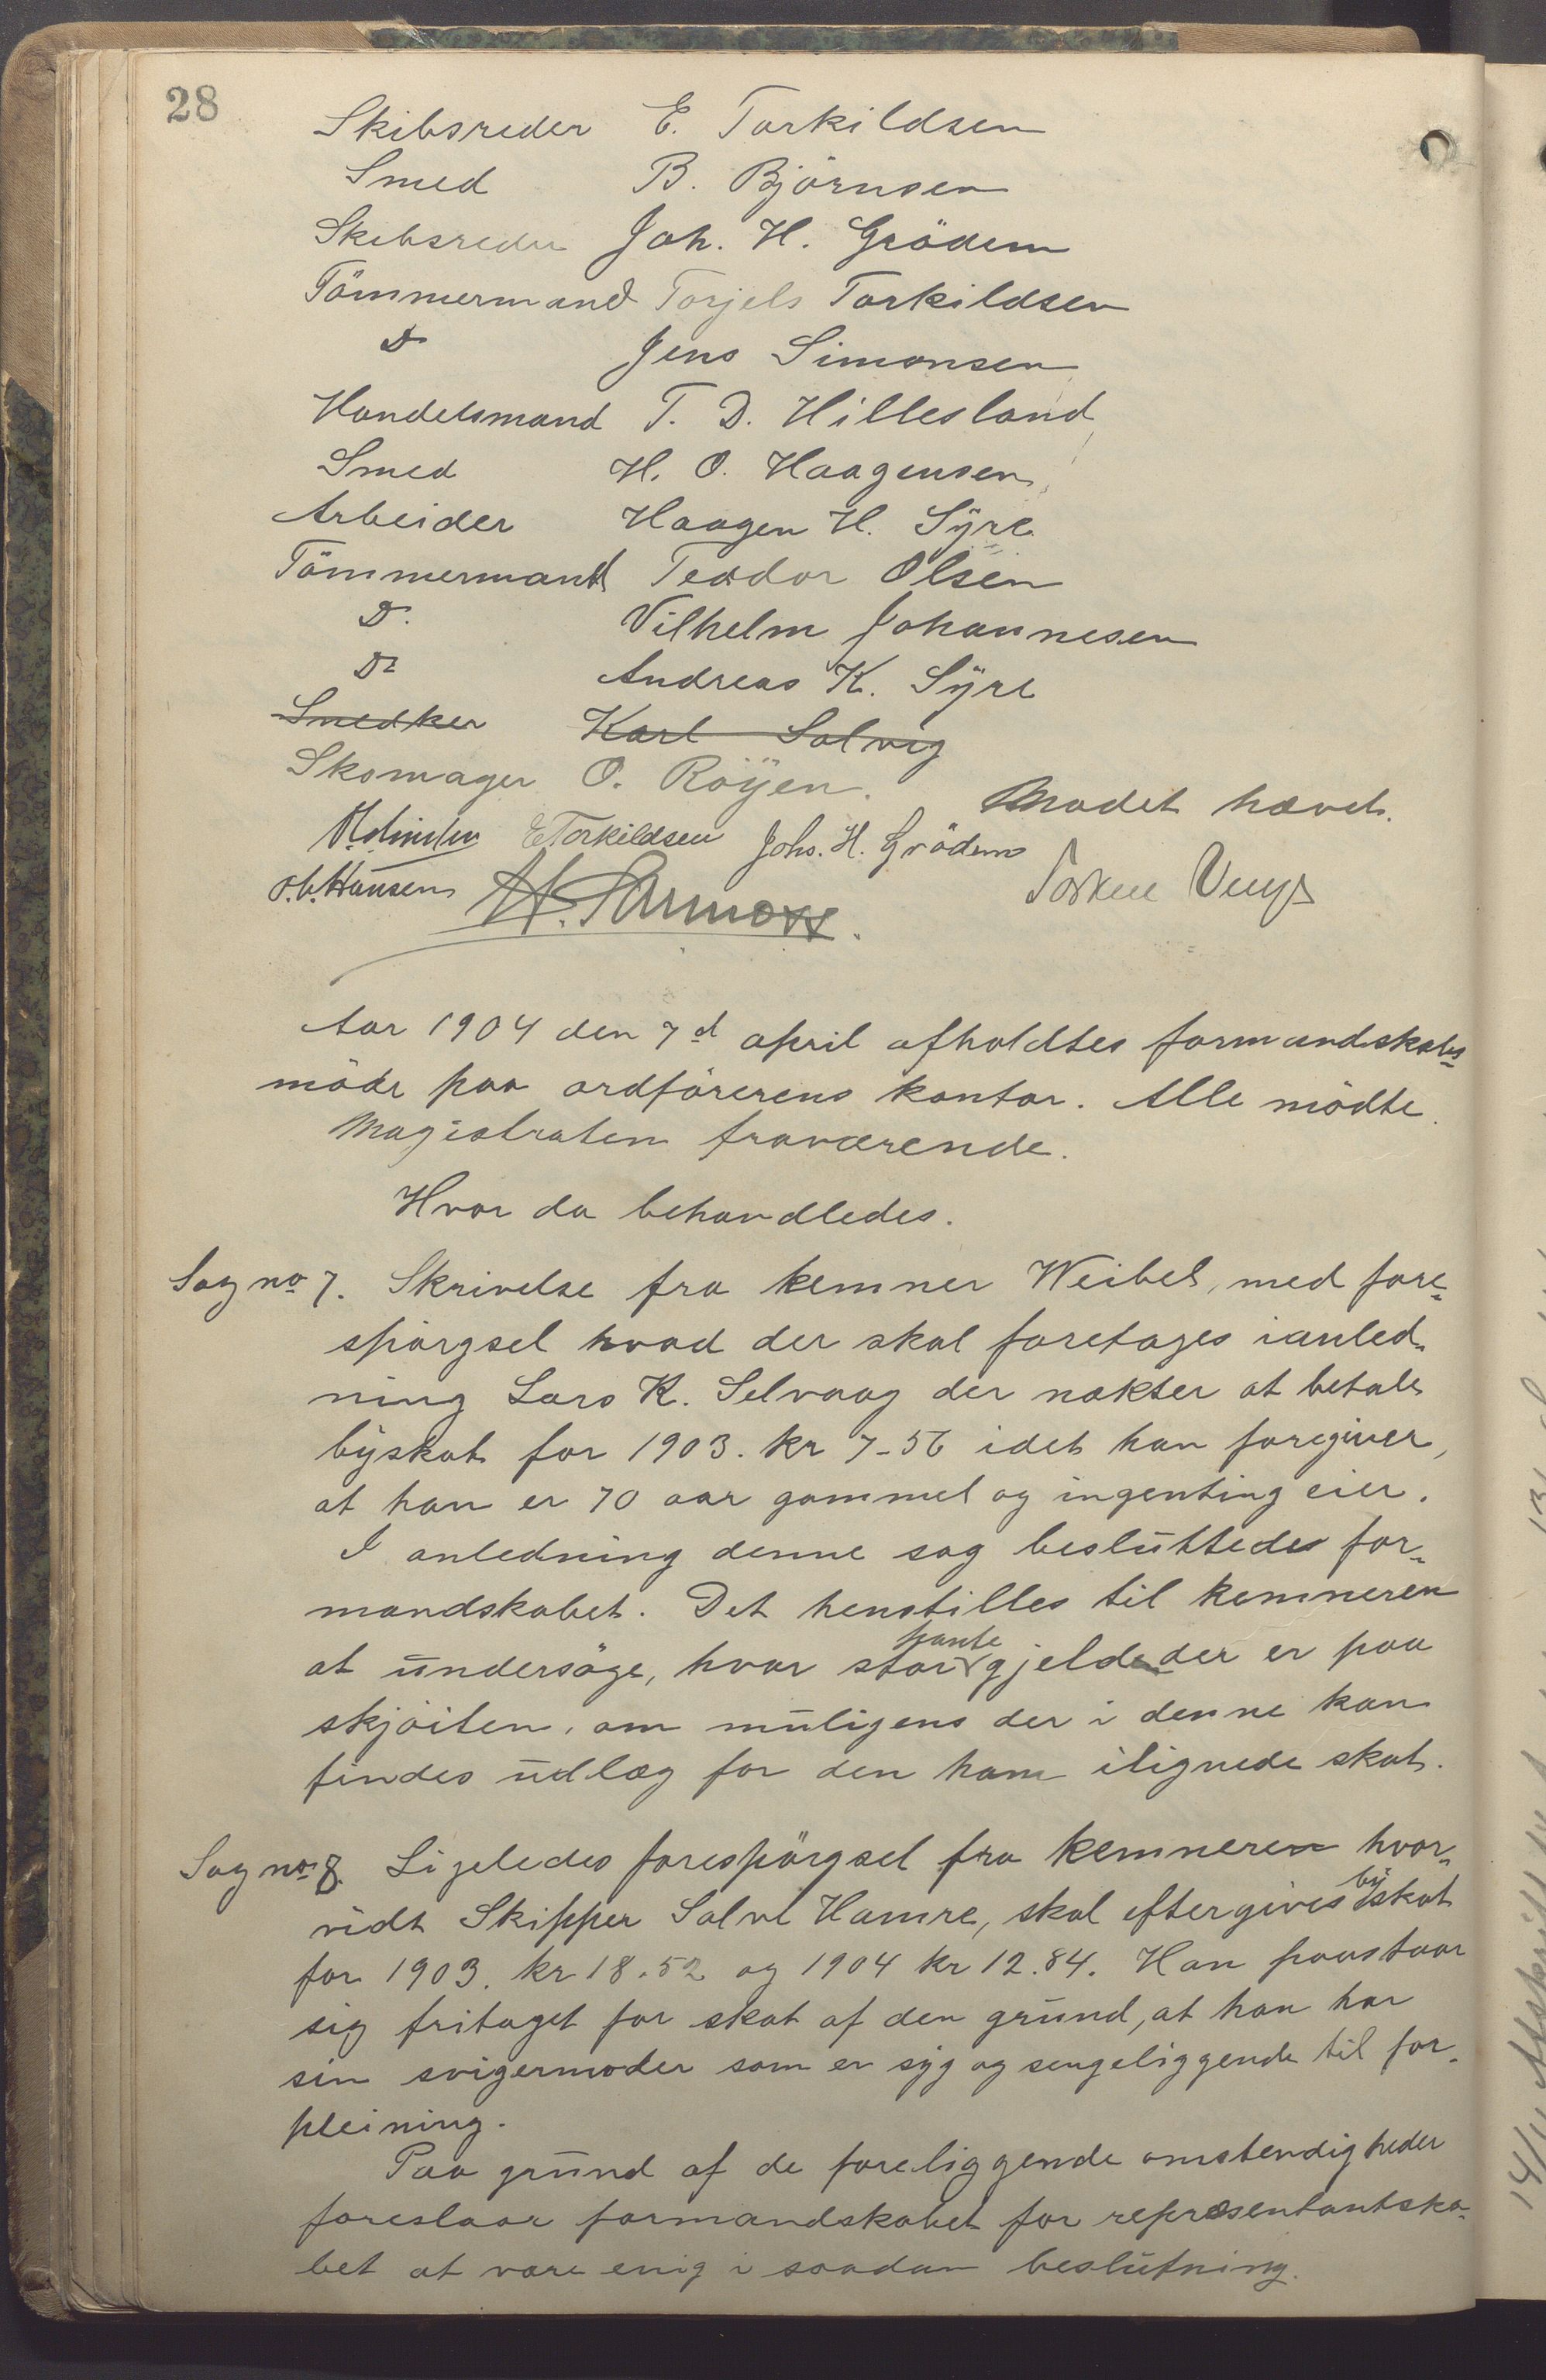 28
Skibsreder E. Torkildsen
Smed B. Björnsen
Skibsreder Joh. H. Grödem
Tömmermand Torjels Torkildsen
Do Jens Simonsen
Handelsmand T. D. Hillesland
Smed H. O. Haagensen
Arbeider Haagen H. Syre
Tömmermand Teodor Olsen
Do Vilhelm Johannesen
Do Andreas K. Syre
Snedker Karl Solvig
Skomager O. Röyen.
Mødet hævet.
E Torkildsen Johs. H. Grödem
O. C. Hansen
Aar 1904 den 7d april afholdtes formandskabs-
möde paa ordförerens kontor. Alle mödte.
Magistraten fraværende.
Hvor da behandledes.
Sag no 7. Skrivelse fra kemner Weibel, med fore-
spörgsel hvad der skal foretages ianled-
ning Lars K. Selvaag der nækter at betale
byskat for 1903. kr 7-56 idet han foregiver,
at han er 70 aar gammel og ingenting eier.
I anledning denne sag besluttedes for-
mandskabet. Det henstilles til kemneren
at undersöge, hvor stor pante gjeld der er paa
skjöiten, om muligens der i denne kan
findes udlæg for den ham ilignede skat.
Sag no 8. Ligeledes forespörgsel fra kemneren hvor-
vidt Skipper Salve Hamre, skal eftergives byskat
for 1903. kr 18.52 og 1904 kr 12.84. Han paastaar
sig fritaget for skat af den grund, at han har
sin svigermoder som er syg og sengeliggende til for-
pleining.
Paa grund af de foreliggende omstendigheder
foreslaar formandskabet for repræsentantska-
bet at være enig i saadan beslutning.